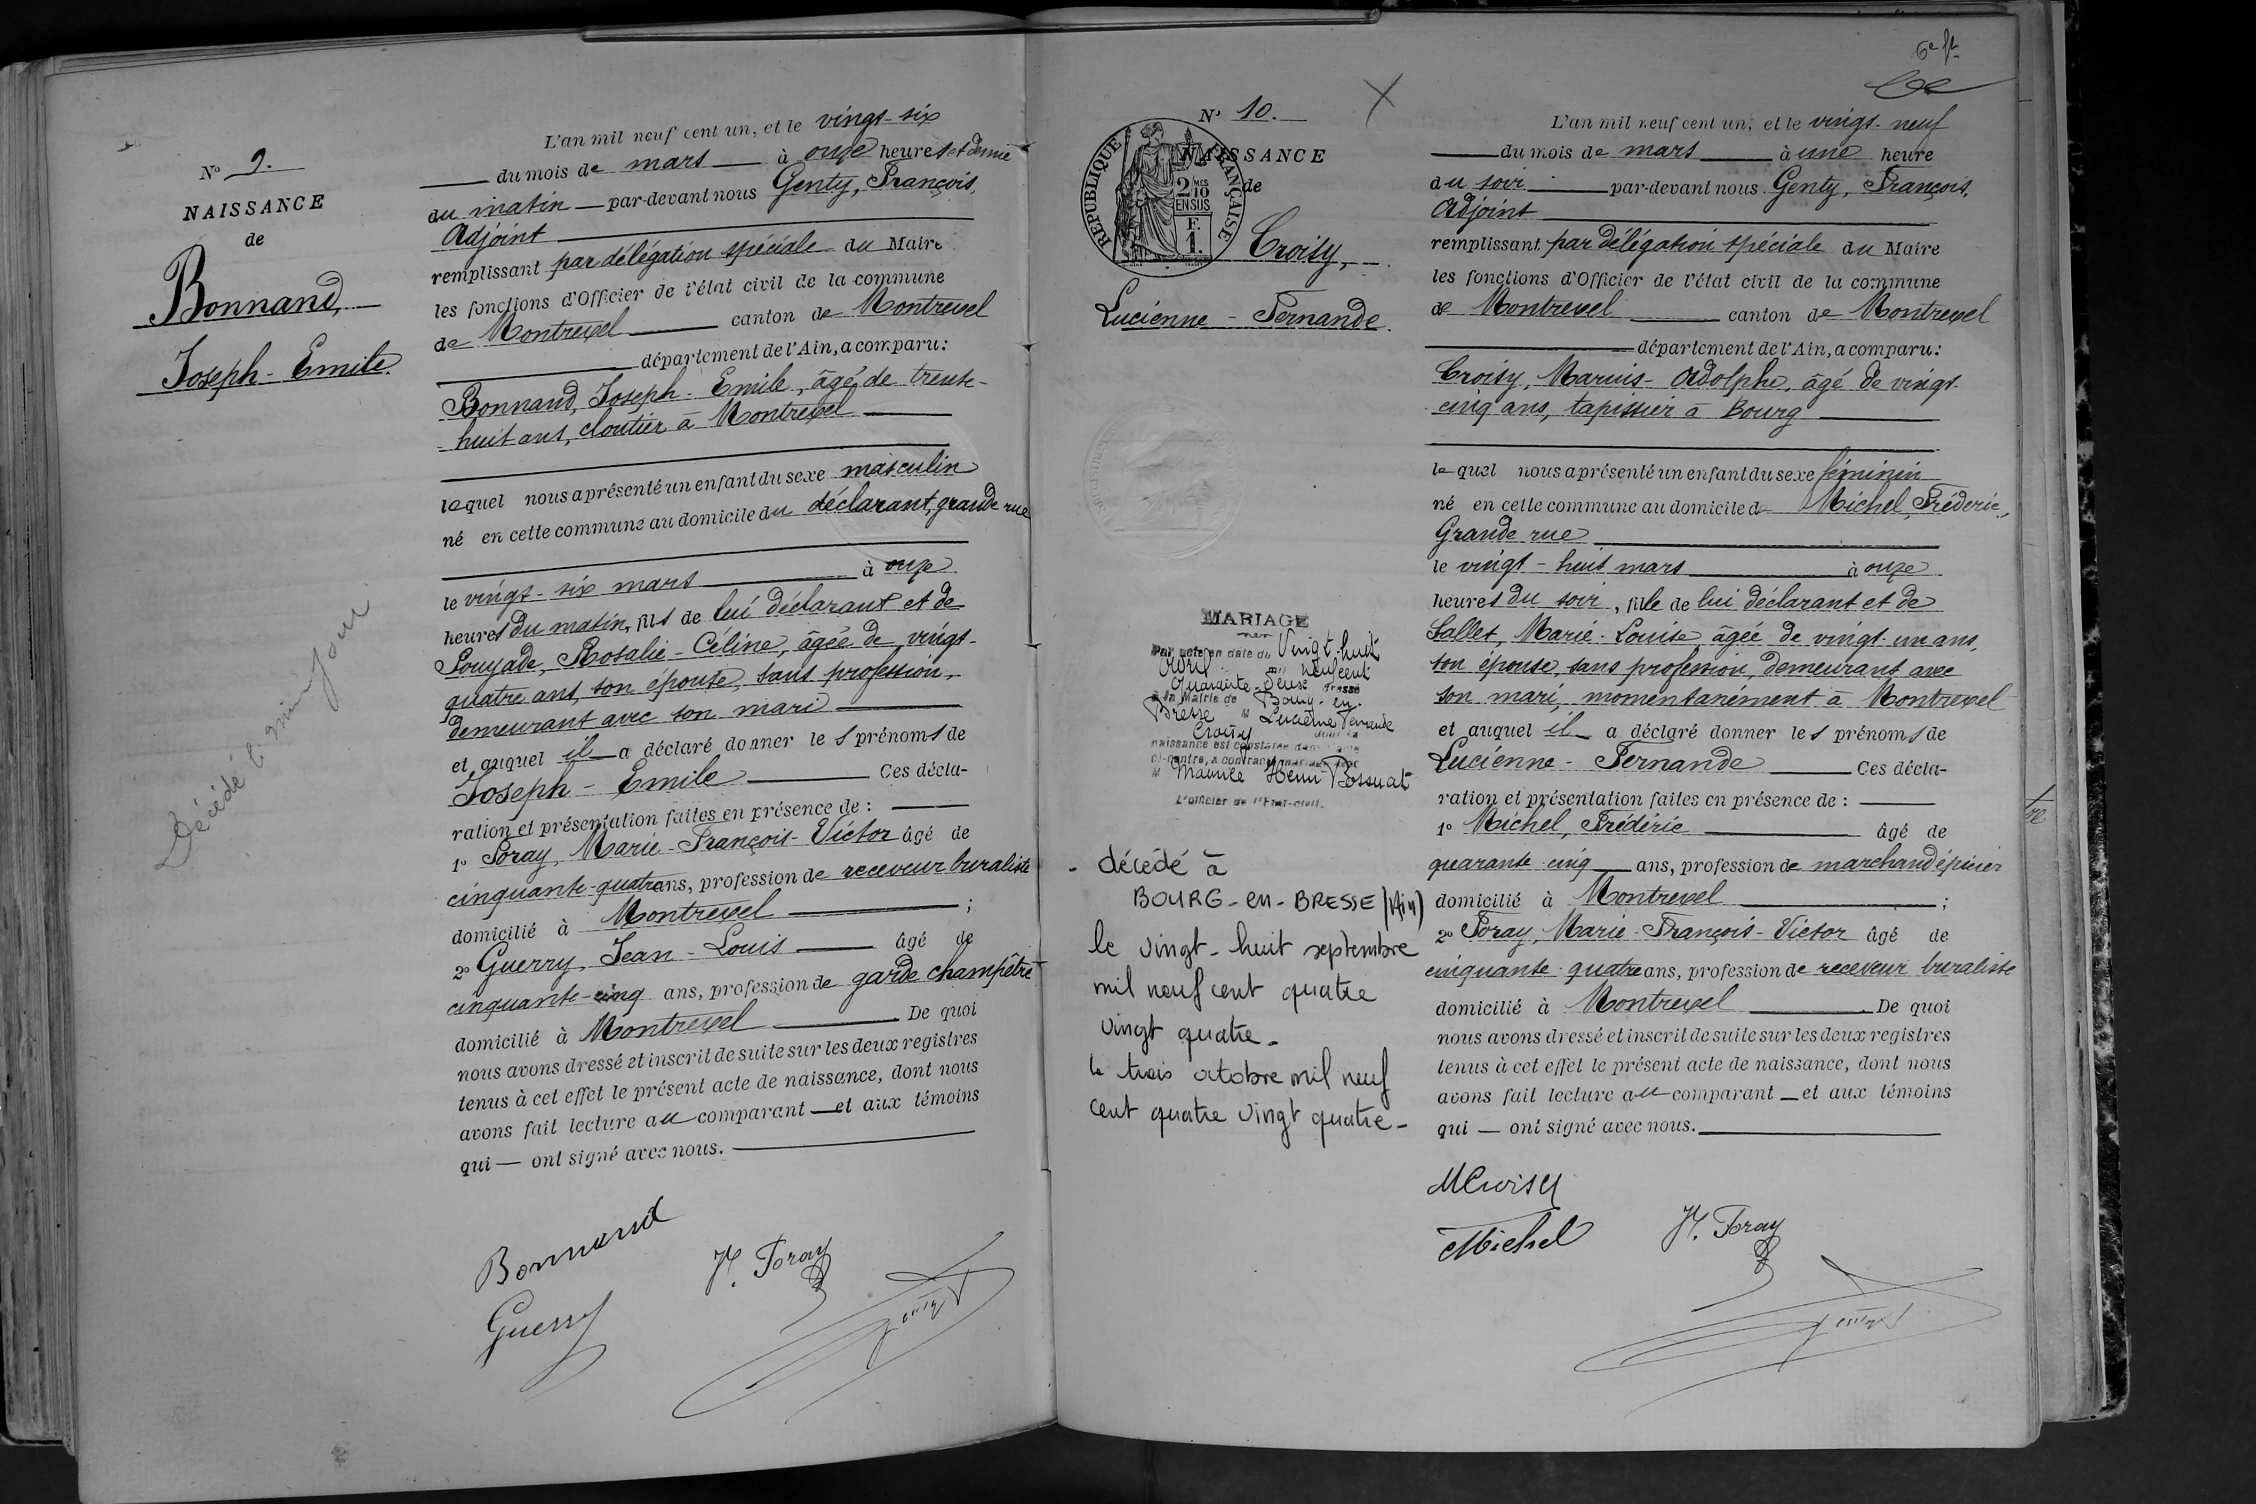 N° 9.
NAISSANCE
de
Bonnand,
Joseph - Emile.
Décédé le même jour
L'an mil neuf cent un, et le vingt-six
du mois de mars à onze heures et demie
du matin par-devant nous Genty, François,
Adjoint
remplissant par délégation spéciale du Maire
les fonctions d'Officier de l'état civil de la commune
de Montrevel canton de Montrevel
département de l'Ain, a comparu:
Bonnand, Joseph-Emile, âgé de trente-
huit ans, cloutier à Montrevel
lequel nous a présenté un enfant du sexe masculin
né en cette commune au domicile du déclarant, grande rue
le vingt-six mars à onze
heures du matin, fils de lui déclarant et de
Pouyade, Rosalie-Céline, âgée de vingt-
quatre ans, son épouse, sans profession,
demeurant avec son mari
et auquel il a déclaré donner les prénoms de
Joseph - Emile Ces décla-
ration et présentation faites en présence de :
1° Foray, Marie-François-Victor âgé de
cinquante-quatre ans, profession de receveur buraliste
domicilié à Montrevel ;
2° Guerry, Jean-Louis âgé de
cinquante-cinq ans, profession de garde champêtre
domicilié à Montrevel De quoi
nous avons dressé et inscrit de suite sur les deux registres
tenus à cet effet le présent acte de naissance, dont nous
avons fait lecture au comparant et aux témoins
qui — ont signé avec nous.
Bonnand
V. Foray
Guerry
Genty
6e ft
N° 10.
NAISSANCE
de
RÉPUBLIQUE FRANÇAISE
2/10 MES
EN SUS
F.
1.
Croisy,
Lucienne - Fernande.
MARIAGE
Par acte en date du Vingt-huit
Avril mil neuf cent
Quarante-deux dressé
à la Mairie de Bourg-en-
Bresse M Lucienne Fernande
Croisy dont la
naissance est constatée dans l'acte
ci-contre, a contracté mariage avec
M Maurice Henri Bossuat
L'officier de l'Etat-civil.
- décédé à
BOURG-en-BRESSE (Ain)
le vingt-huit septembre
mil neuf cent quatre
vingt quatre -
le trois octobre mil neuf
cent quatre vingt quatre -
L'an mil neuf cent un, et le vingt-neuf
du mois de mars à une heure
du soir par-devant nous Genty, François,
Adjoint
remplissant par délégation spéciale du Maire
les fonctions d'Officier de l'état civil de la commune
de Montrevel canton de Montrevel
département de l'Ain, a comparu:
Croisy, Marius-Adolphe, âgé de vingt-
cinq ans, tapissier à Bourg
lequel nous a présenté un enfant du sexe féminin
né en cette commune au domicile de Michel, Fréderic,
Grande rue
le vingt-huit mars à onze
heures du soir, fille de lui déclarant et de
Sallet, Marie-Louise âgée de vingt-un ans,
son épouse, sans profession, demeurant avec
son mari, momentanément à Montrevel
et auquel il a déclaré donner les prénoms de
Lucienne - Fernande Ces décla-
ration et présentation faites en présence de :
1° Michel, Frédéric âgé de
quarante-cinq ans, profession de marchand épicier
domicilié à Montrevel ;
2° Foray, Marie-François-Victor âgé de
cinquante-quatre ans, profession de receveur buraliste
domicilié à Montrevel De quoi
nous avons dressé et inscrit de suite sur les deux registres
tenus à cet effet le présent acte de naissance, dont nous
avons fait lecture au comparant et aux témoins
qui — ont signé avec nous.
M Croisy
Michel
V. Foray
Genty